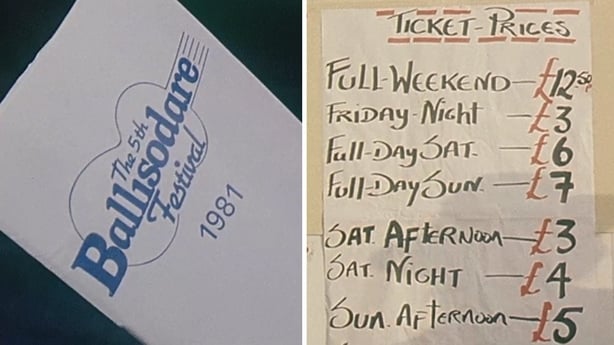 The 5th
Ballisodare
Festival
1981
TICKET-PRICES
FULL-WEEKEND—£12.50
FRIDAY-Night —£3
Full-DAY SAT. —£6
Full-DAY SUN. —£7
SAT. AFTERNOON—£3
SAT. NIGHT —£4
Sun. AFternoon—£5